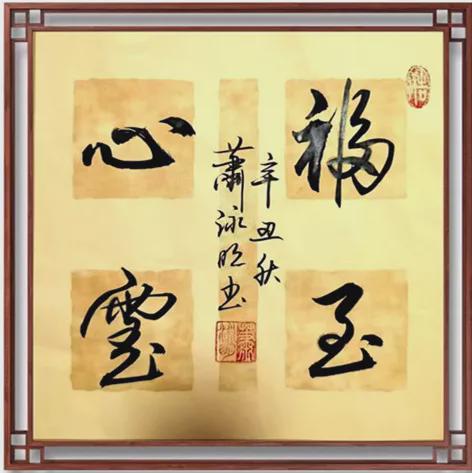 福至
心靈
辛丑秋
蕭泳明书